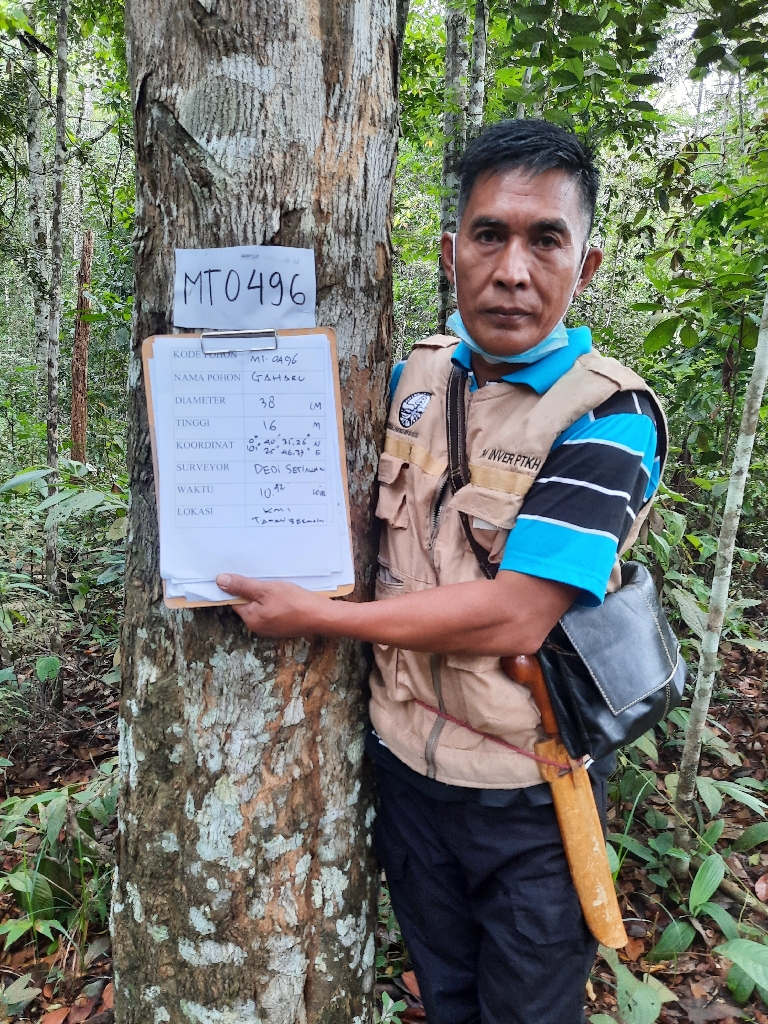 MT0496
KODE POHON MT. 0496
NAMA POHON GAHARU
DIAMETER 38 CM
TINGGI 16 M
KOORDINAT 0° 40' 35,26" N
101° 25' 46,37" E
SURVEYOR DEDI SETIAWAN
WAKTU 10.42 WIB
LOKASI KM 1
TAMAN BERMAIN
INVER PTKH